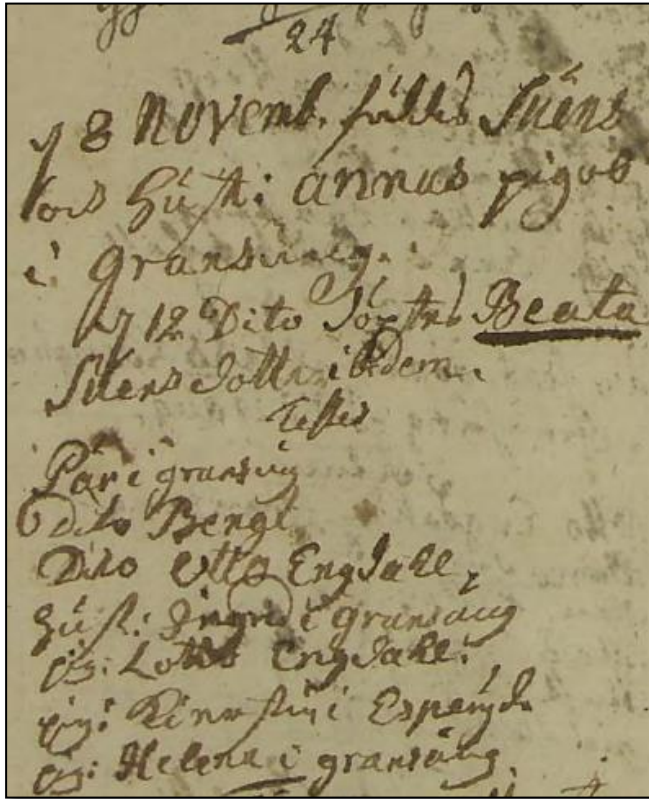 24
d 8 Novemb. föddes Suens
och Hust: annas pigeb
i gransäng.
d 12 Dito döptes Beata
Suens dotter ibidem.
Testes
Pär i gransäng
Dito Bengt
Dito Otto Engdahl,
Hust: Ingrid i gransäng
pig: Lotta Engdahl.
pig: Kierstin i Esperyd.
pig: Helena i gransäng.